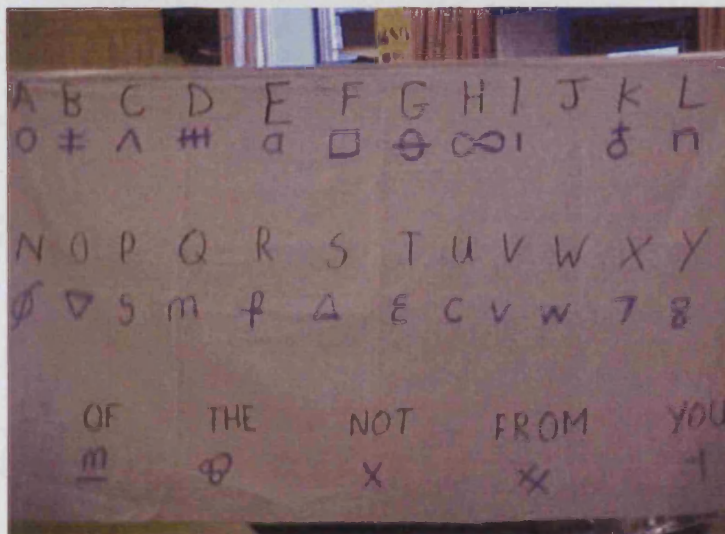 A B C D E F G H I J K L
O ‡ ʌ a □ ꝋ ∞ I ♁ n
N O P Q R S T U V W X Y
ø ▽ S m f △ ξ C V W 7 8
OF THE NOT FROM YOU
m X